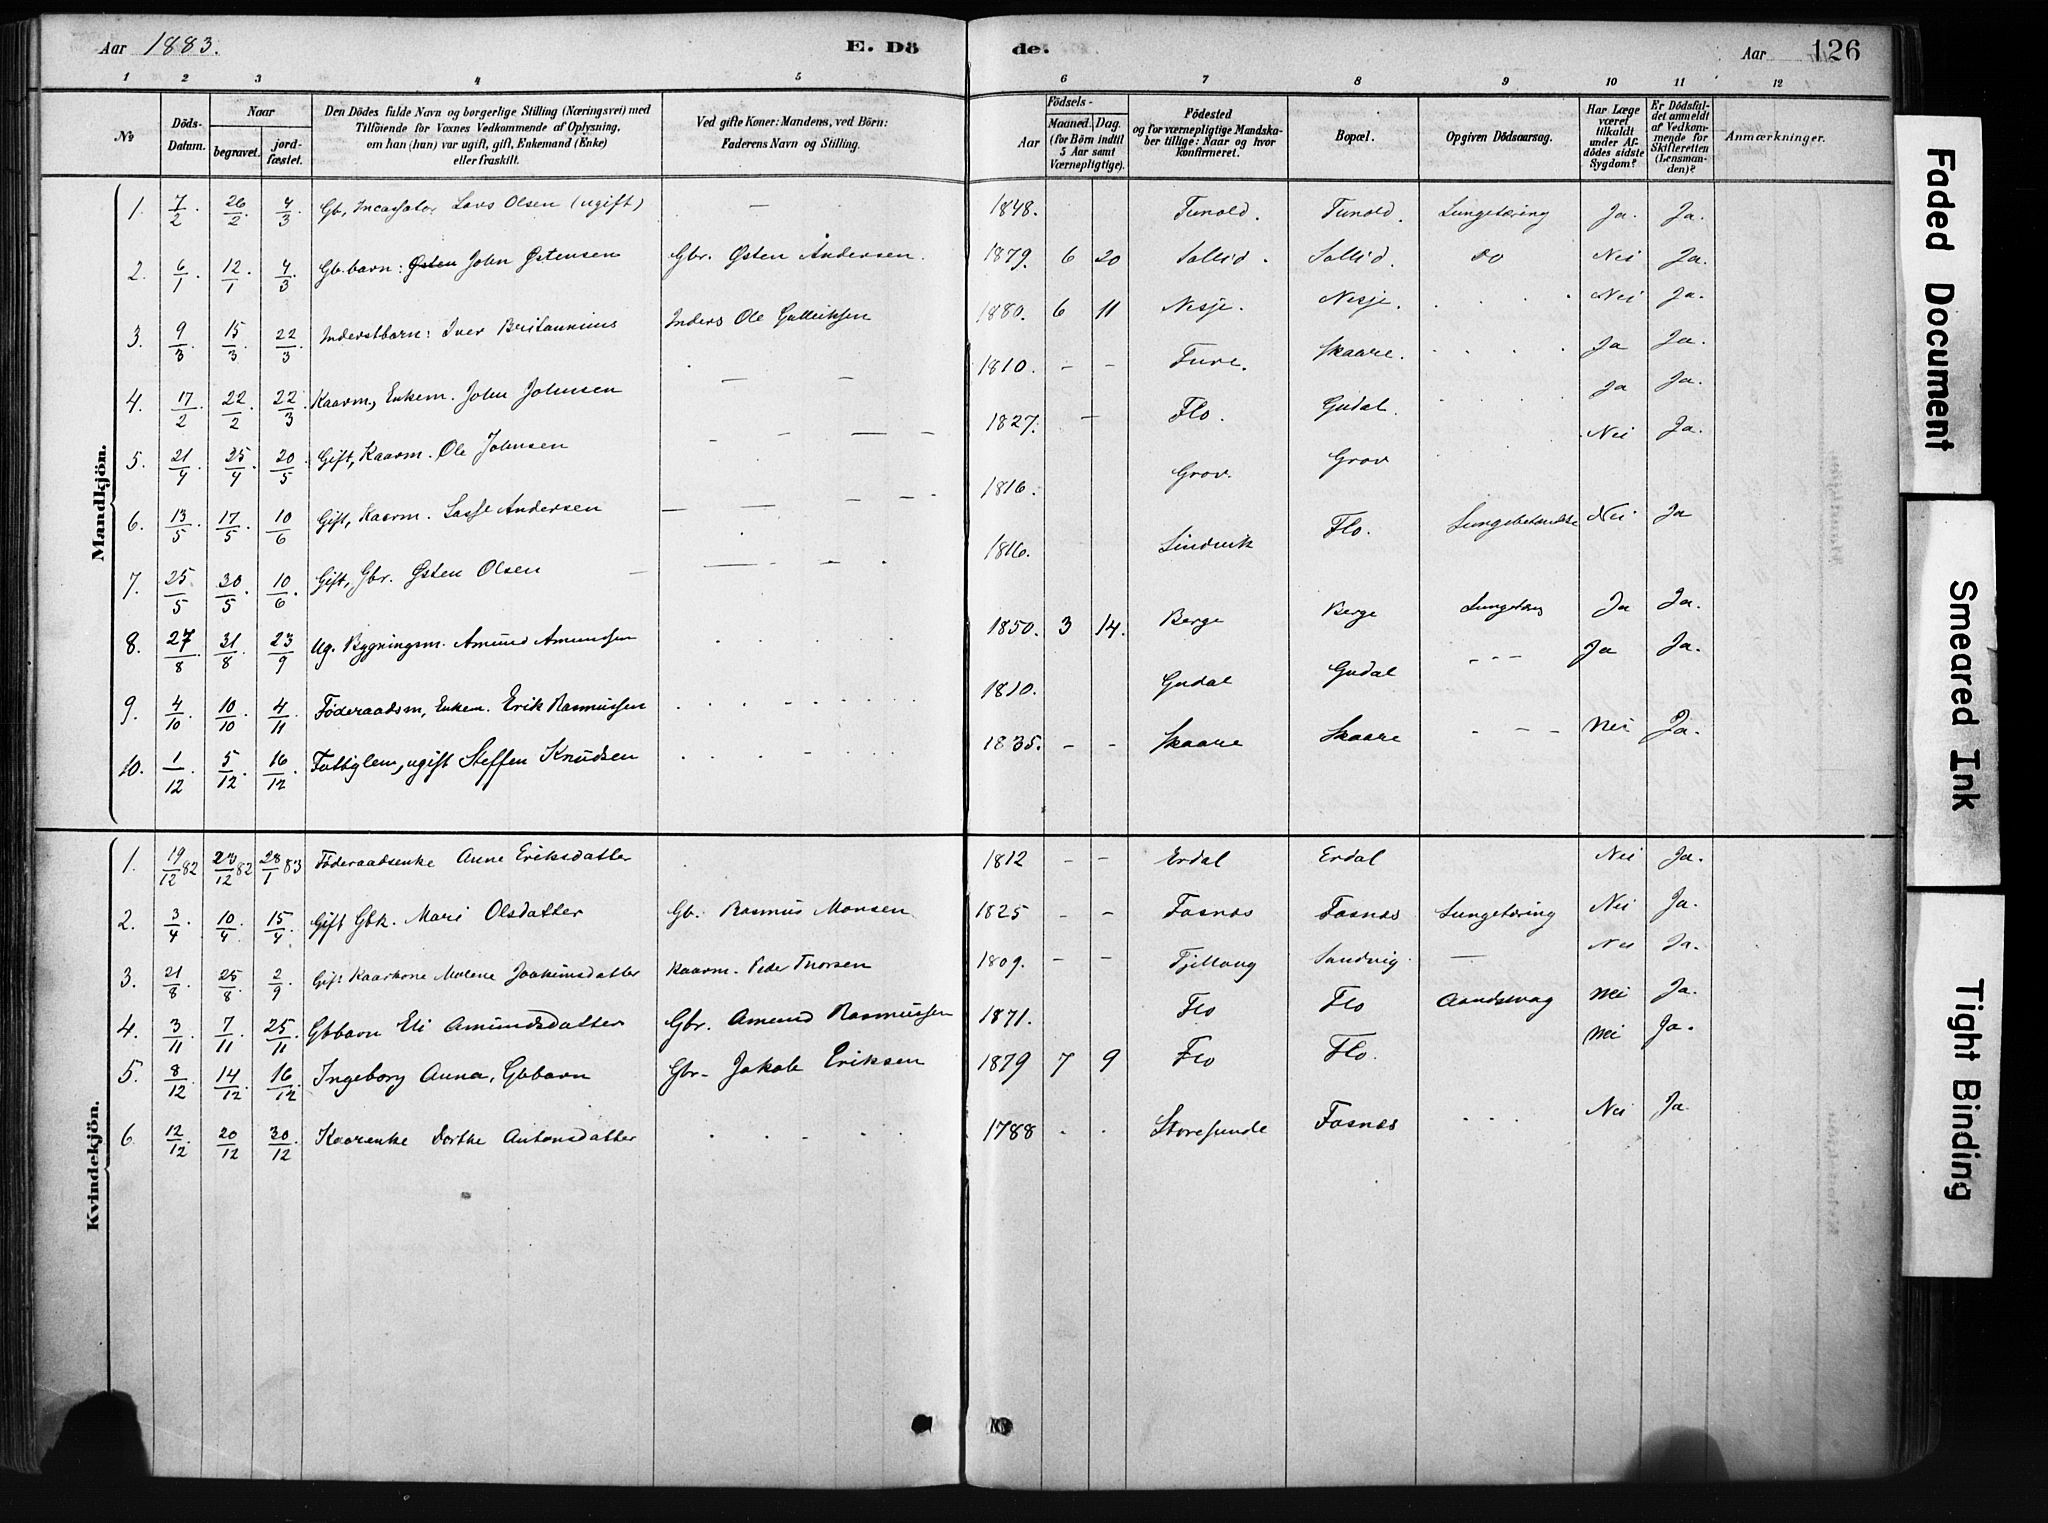 Aar 1883. E. Döde. Aar 126
1 2 3 4 5 6 7 8 9 10 11 12
No Döds-Datum. Naar begravet. jordfæstet. Den Dödes fulde Navn og borgerlige Stilling (Næringsvei) med Tilföiende for Voxnes Vedkommende af Oplysning, om han (hun) var ugift, gift, Enkemand (Enke) eller fraskilt. Ved gifte Koner: Mandens, ved Börn: Faderens Navn og Stilling. Födsels- Aar Maaned. Dag. (for Börn indtil 5 Aar samt Værnepligtige). Födested og for værnepligtige Mandskaber tillige: Naar og hvor konfirmeret. Bopæl. Opgiven Dödsaarsag. Har Læge været tilkaldt under Afdödes sidste Sygdom? Er Dödsfaldet anmeldt af Vedkommende for Skifteretten (Lensmanden)? Anmærkninger.
Mandkjön.
1. 7/2. 26/2. 4/3 Gb, Lars Olsen (ugift) — 1848. Tunold. Tunold. Lungetæring Ja. Ja.
2. 6/1 12/1 4/3 Gb.barn: Østen John Østensen Gbr. Østen Andersen. 1879. 6 20 Sollid. Sollid. Do Nei Ja.
3. 9/3 15/3. 22/3. Inderstbarn: Iver Britannius Inders Ole Gulleiksen 1880. 6 11 Nesje. Nesje. Nei Ja.
4. 17/2. 22/2. 22/3 Kaarm., Enkem. John Johnsen — — 1810. - - Fure. Skaare. Ja Ja.
5. 21/4 25/4. 20/5 Gift, Kaarm. Ole Johnsen — — 1827. — Flo. Gudal. Ja Ja.
6. 13/5. 17/5. 10/6 Gift, Kaarm. Lasse Andersen — — 1816. Grov. Grov Nei Ja.
7. 25/5 30/5. 10/6 Gift, Gbr. Østen Olsen — — 1816. Lindvik Flo. Nei Ja
8. 27/8 31/8. 23/9 Ug. Bygningsm. Amund Amundsen 1850. 3 14. Berge Berge Ja Ja.
9. 4/10 10/10. 4/11 Föderaadsm, Enkem. Erik Rasmussen 1810. Gudal Gudal - - - Ja Ja.
10. 1/12 5/12. 16/12. Fattiglem, ugift Steffen Knudsen 1835. - - Skaare Skaare - - - Nei Ja.
Kvindekjön.
1. 19/12 82 23/12 82 28/1 83 Föderaadsenke Anne Eriksdatter 1812 - - Erdal Erdal Nei Ja.
2. 3/4 10/4. 15/4 Gift Gbk. Mari Olsdatter Gb. Rasmus Monsen 1825 - - Fosnæs Fosnæs Lungetæring Nei Ja.
3. 21/8 25/8. 2/9 Gift Kaarkone Malene Joakimsdatter Kaarm. Peder Thorsen 1809. - - Sandvig — Nei Ja.
4. 3/11 7/11. 25/11. Gbbarn Eli Amundsdatter Gbr. Amund Rasmussen 1871. Flo Flo Aandsvag Nei Ja.
5. 8/12 14/12. 16/12 Ingeborg Anna, Gbbarn Gbr. Jakob Eriksen 1879 7 9 Flo Flo. Nei Ja.
6. 12/12 20/12 30/12 Kaarenke Dorthe Antonsdatter 1788 Storesunde Fosnæs Nei Ja
Faded Document
Smeared Ink
Tight Binding